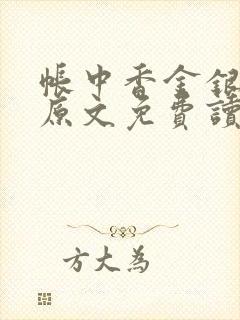 帳中香金銀
原文免費讀
方大為